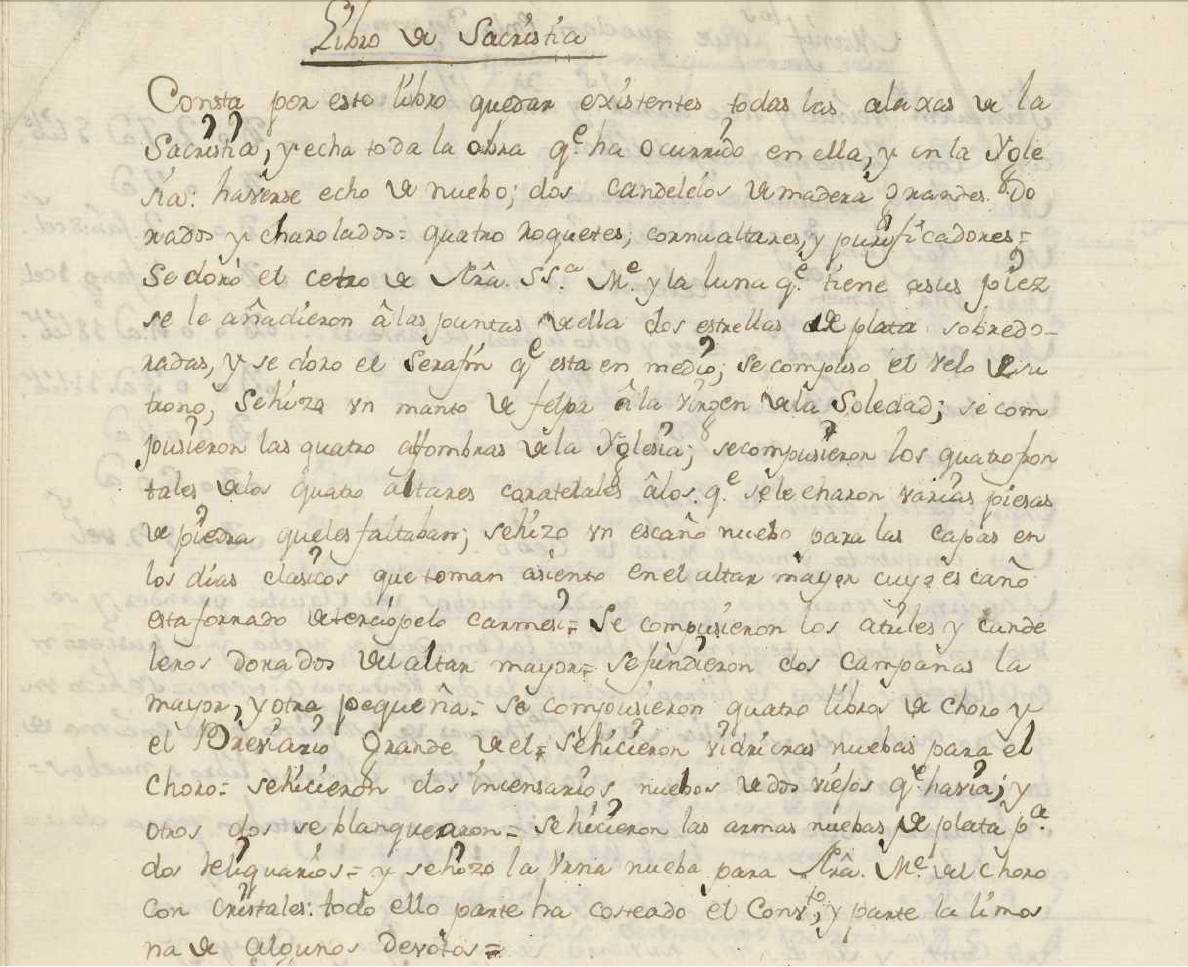 Libro de Sacristia
Consta por este libro quedar existentes todas las alaxas de la
Sacristia, y echa toda la obra q.e ha ocurrido en ella, y en la Ygle
sia: haverse echo de nuebo; dos candeleros de madera grandes. Do
rados y charolados= quatro roquetes, cornualtares, y purificadores=
Se doró el cetro de Nrâ. SS.a M.e y la luna q.e tiene asus piez
se le añadieron â las puntas de ella dos estrellas de plata sobredo-
radas, y se doro el Serafin q.e esta en medio; se compuso el velo de su
trono, se hizo vn manto de felpa â la virgen de la Soledad; se com
pusieron las quatro alfombras de la Yglesia; se compusieron los quatro fron
tales de los quatro altares colaterales âlos. q.e se le echaron varias piesas
de piedra que les faltaban; se hizo vn escaño nuebo para las capas en
los dias clasicos que toman asiento en el altar mayor cuyo escaño
esta forrado de terciopelo carmesi= Se compusieron los atriles y cande
leros dorados del altar mayor= se fundieron dos campanas la
mayor, y otra pequeña= se compusieron quatro libros de choro y
el Breviario grande de el= Se hicieron vidrieras nuebas para el
Choro= se hicieron dos incensarios nuebos de dos viejos q.e havia; y
otros dos se blanquearon= se hicieron las armas nuebas de plata p.a
dos reliquarios= y se hizo la Vrna nueba para Nrâ. M.e del choro
con cristales: todo ello parte ha costeado el Conv.to, y parte la limos
na de algunos devotos=